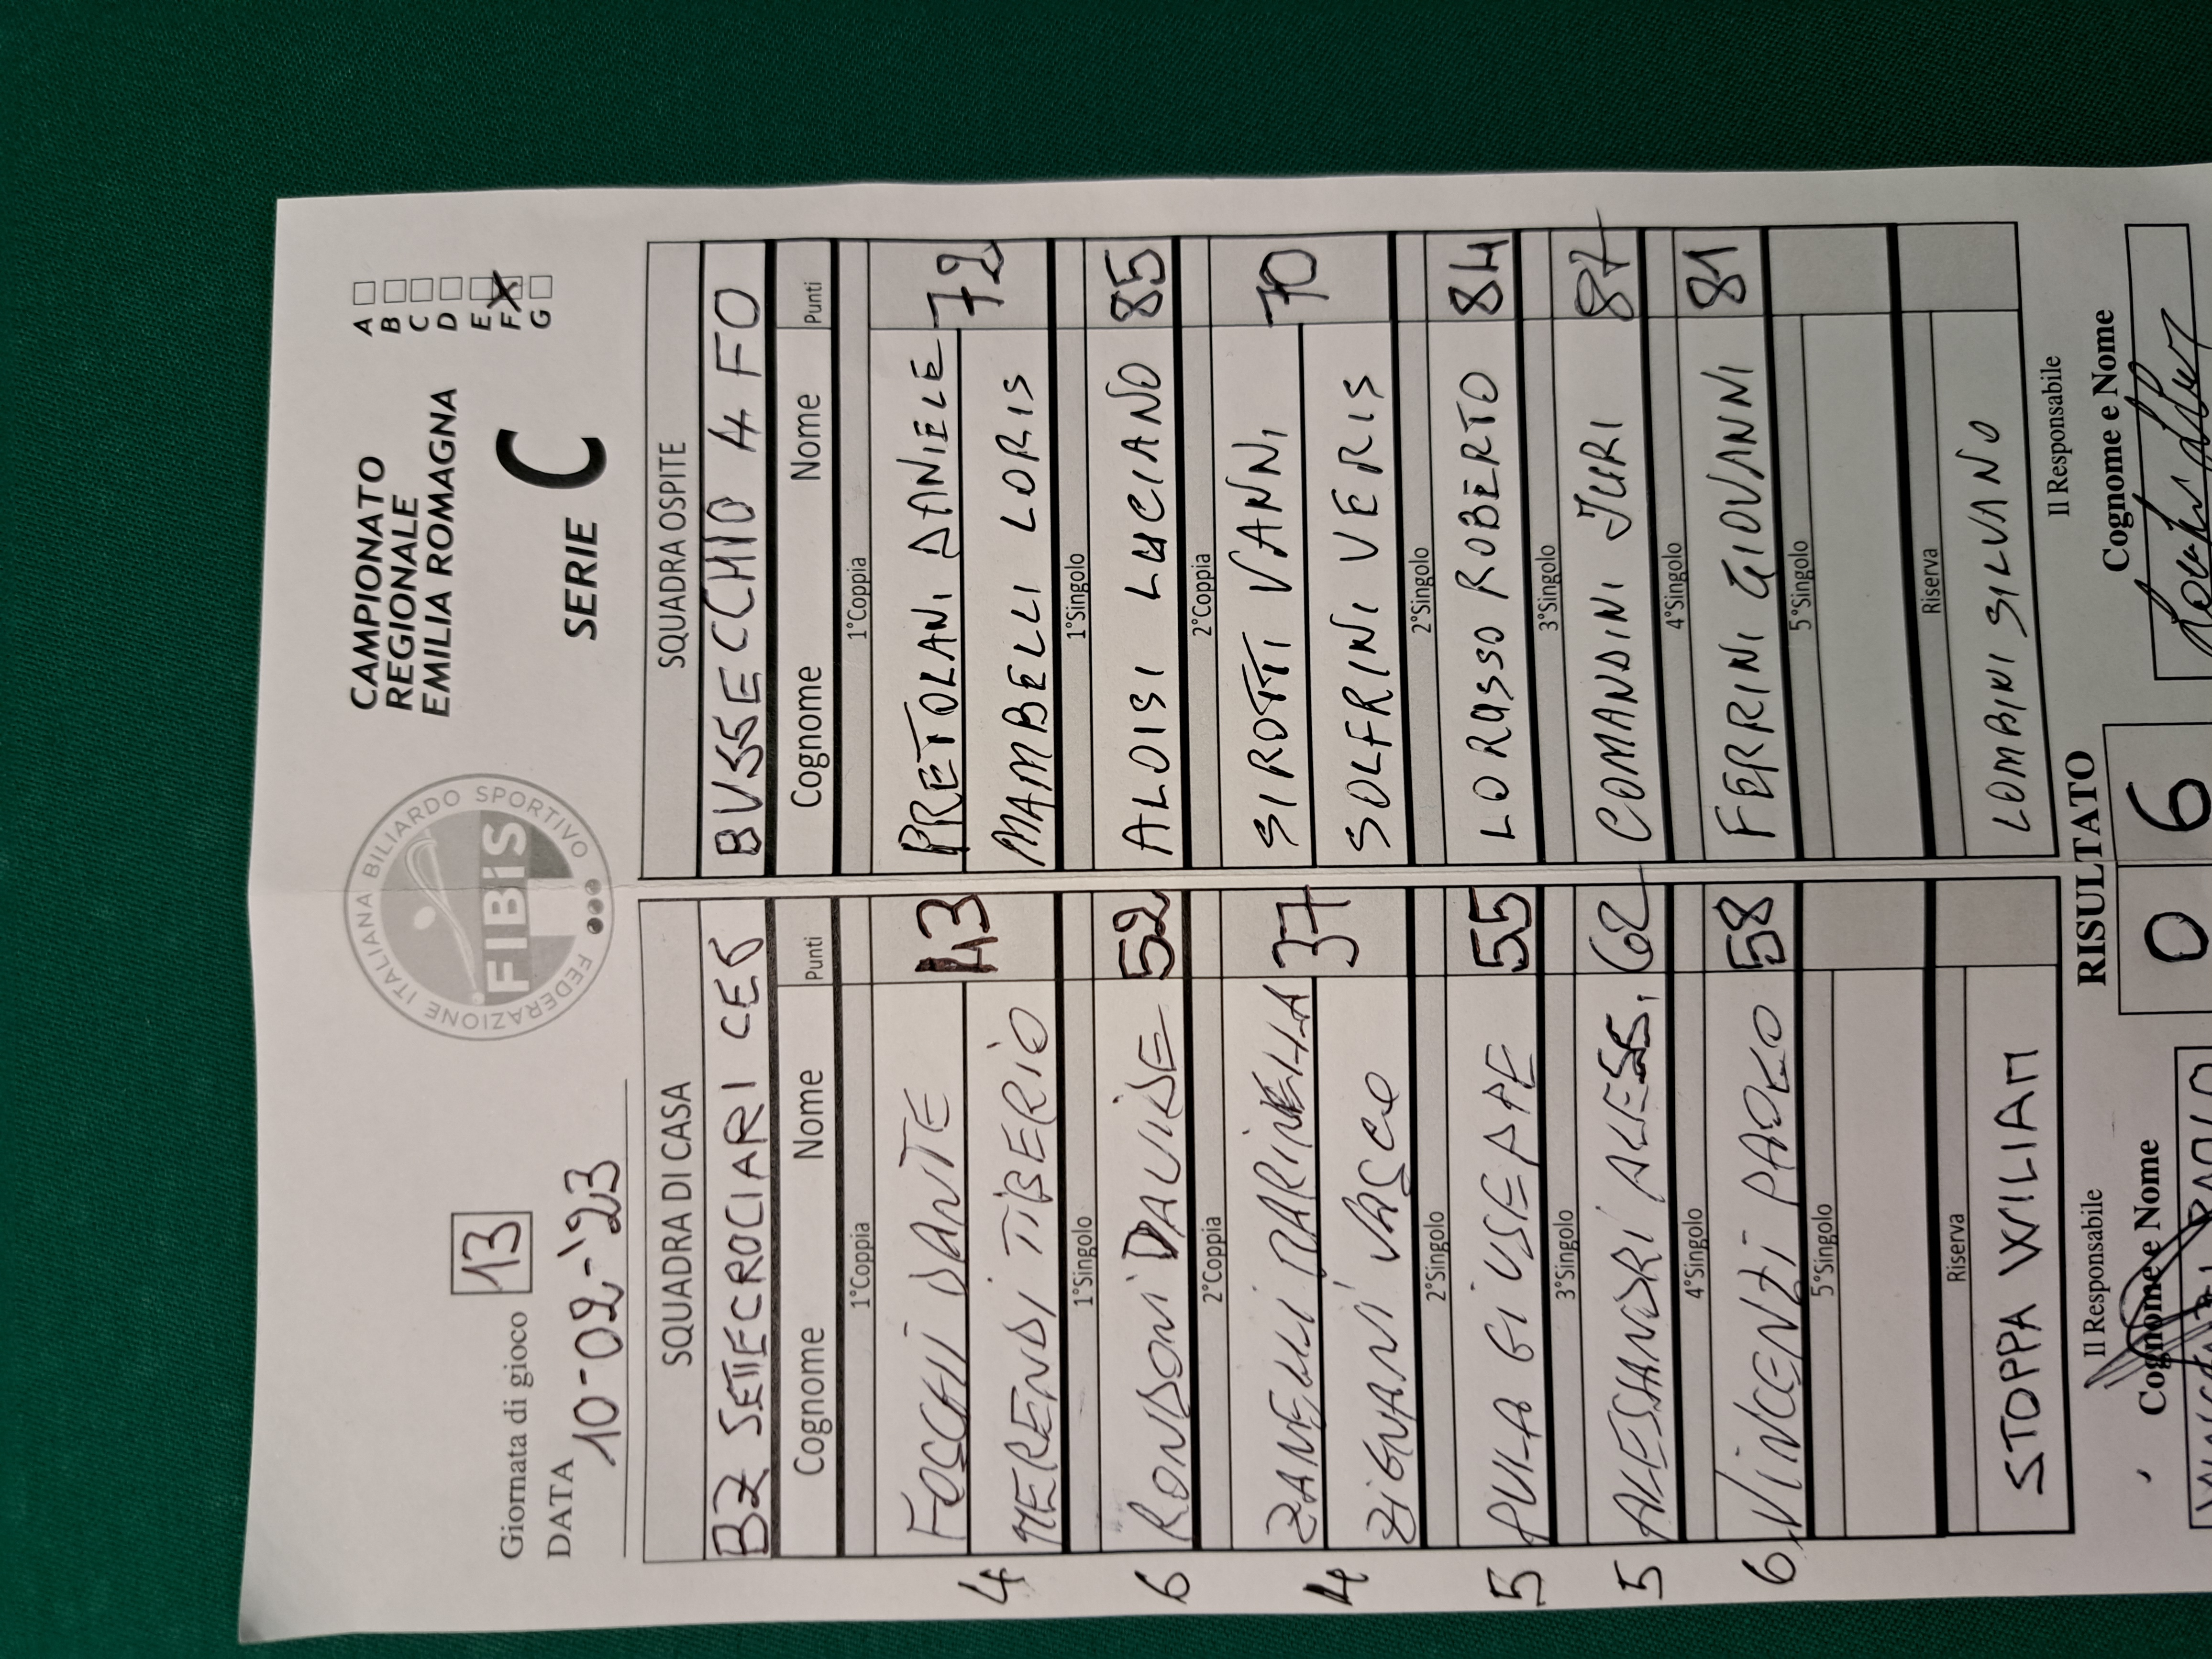 FEDERAZIONE ITALIANA BILIARDO SPORTIVO
FIBiS
CAMPIONATO
REGIONALE
EMILIA ROMAGNA
SERIE C
A
B
C
D
E
F X
G
Giornata di gioco 13
DATA 10-02-'23
SQUADRA DI CASA SQUADRA OSPITE
BZ SETTECROCIARI CE6 BUSSECCHIO A FO
Cognome Nome Punti Cognome Nome Punti
1°Coppia 1°Coppia
FOSCHI DANTE 43 PRETOLANI DANIELE 72
4 MERENDI TIBERIO MAMBELLI LORIS
1°Singolo 1°Singolo
6 RONDONI DAVIDE 52 ALOISI LUCIANO 85
2°Coppia 2°Coppia
ZANELLI MARINELLA 37 SIROTTI VANNI 70
4 ZIGNANI VASCO SOLFRINI VERIS
2°Singolo 2°Singolo
5 PULA GIUSEPPE 55 LORUSSO ROBERTO 84
3°Singolo 3°Singolo
5 ALESSANDRI ALESS. 62 COMANDINI JURI 87
4°Singolo 4°Singolo
6 VINCENZI PAOLO 58 FERRINI GIOVANNI 81
5°Singolo 5°Singolo
Riserva Riserva
STOPPA WILIAM LOMBINI SILVANO
Il Responsabile RISULTATO Il Responsabile
Cognome e Nome 0 6 Cognome e Nome